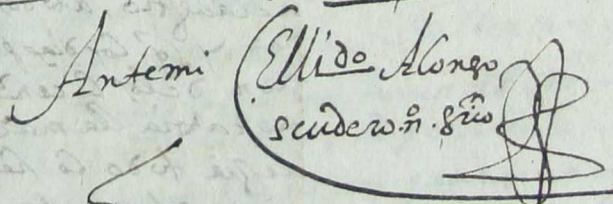 Antemi Ellido Alonso
scudero. nº. srio